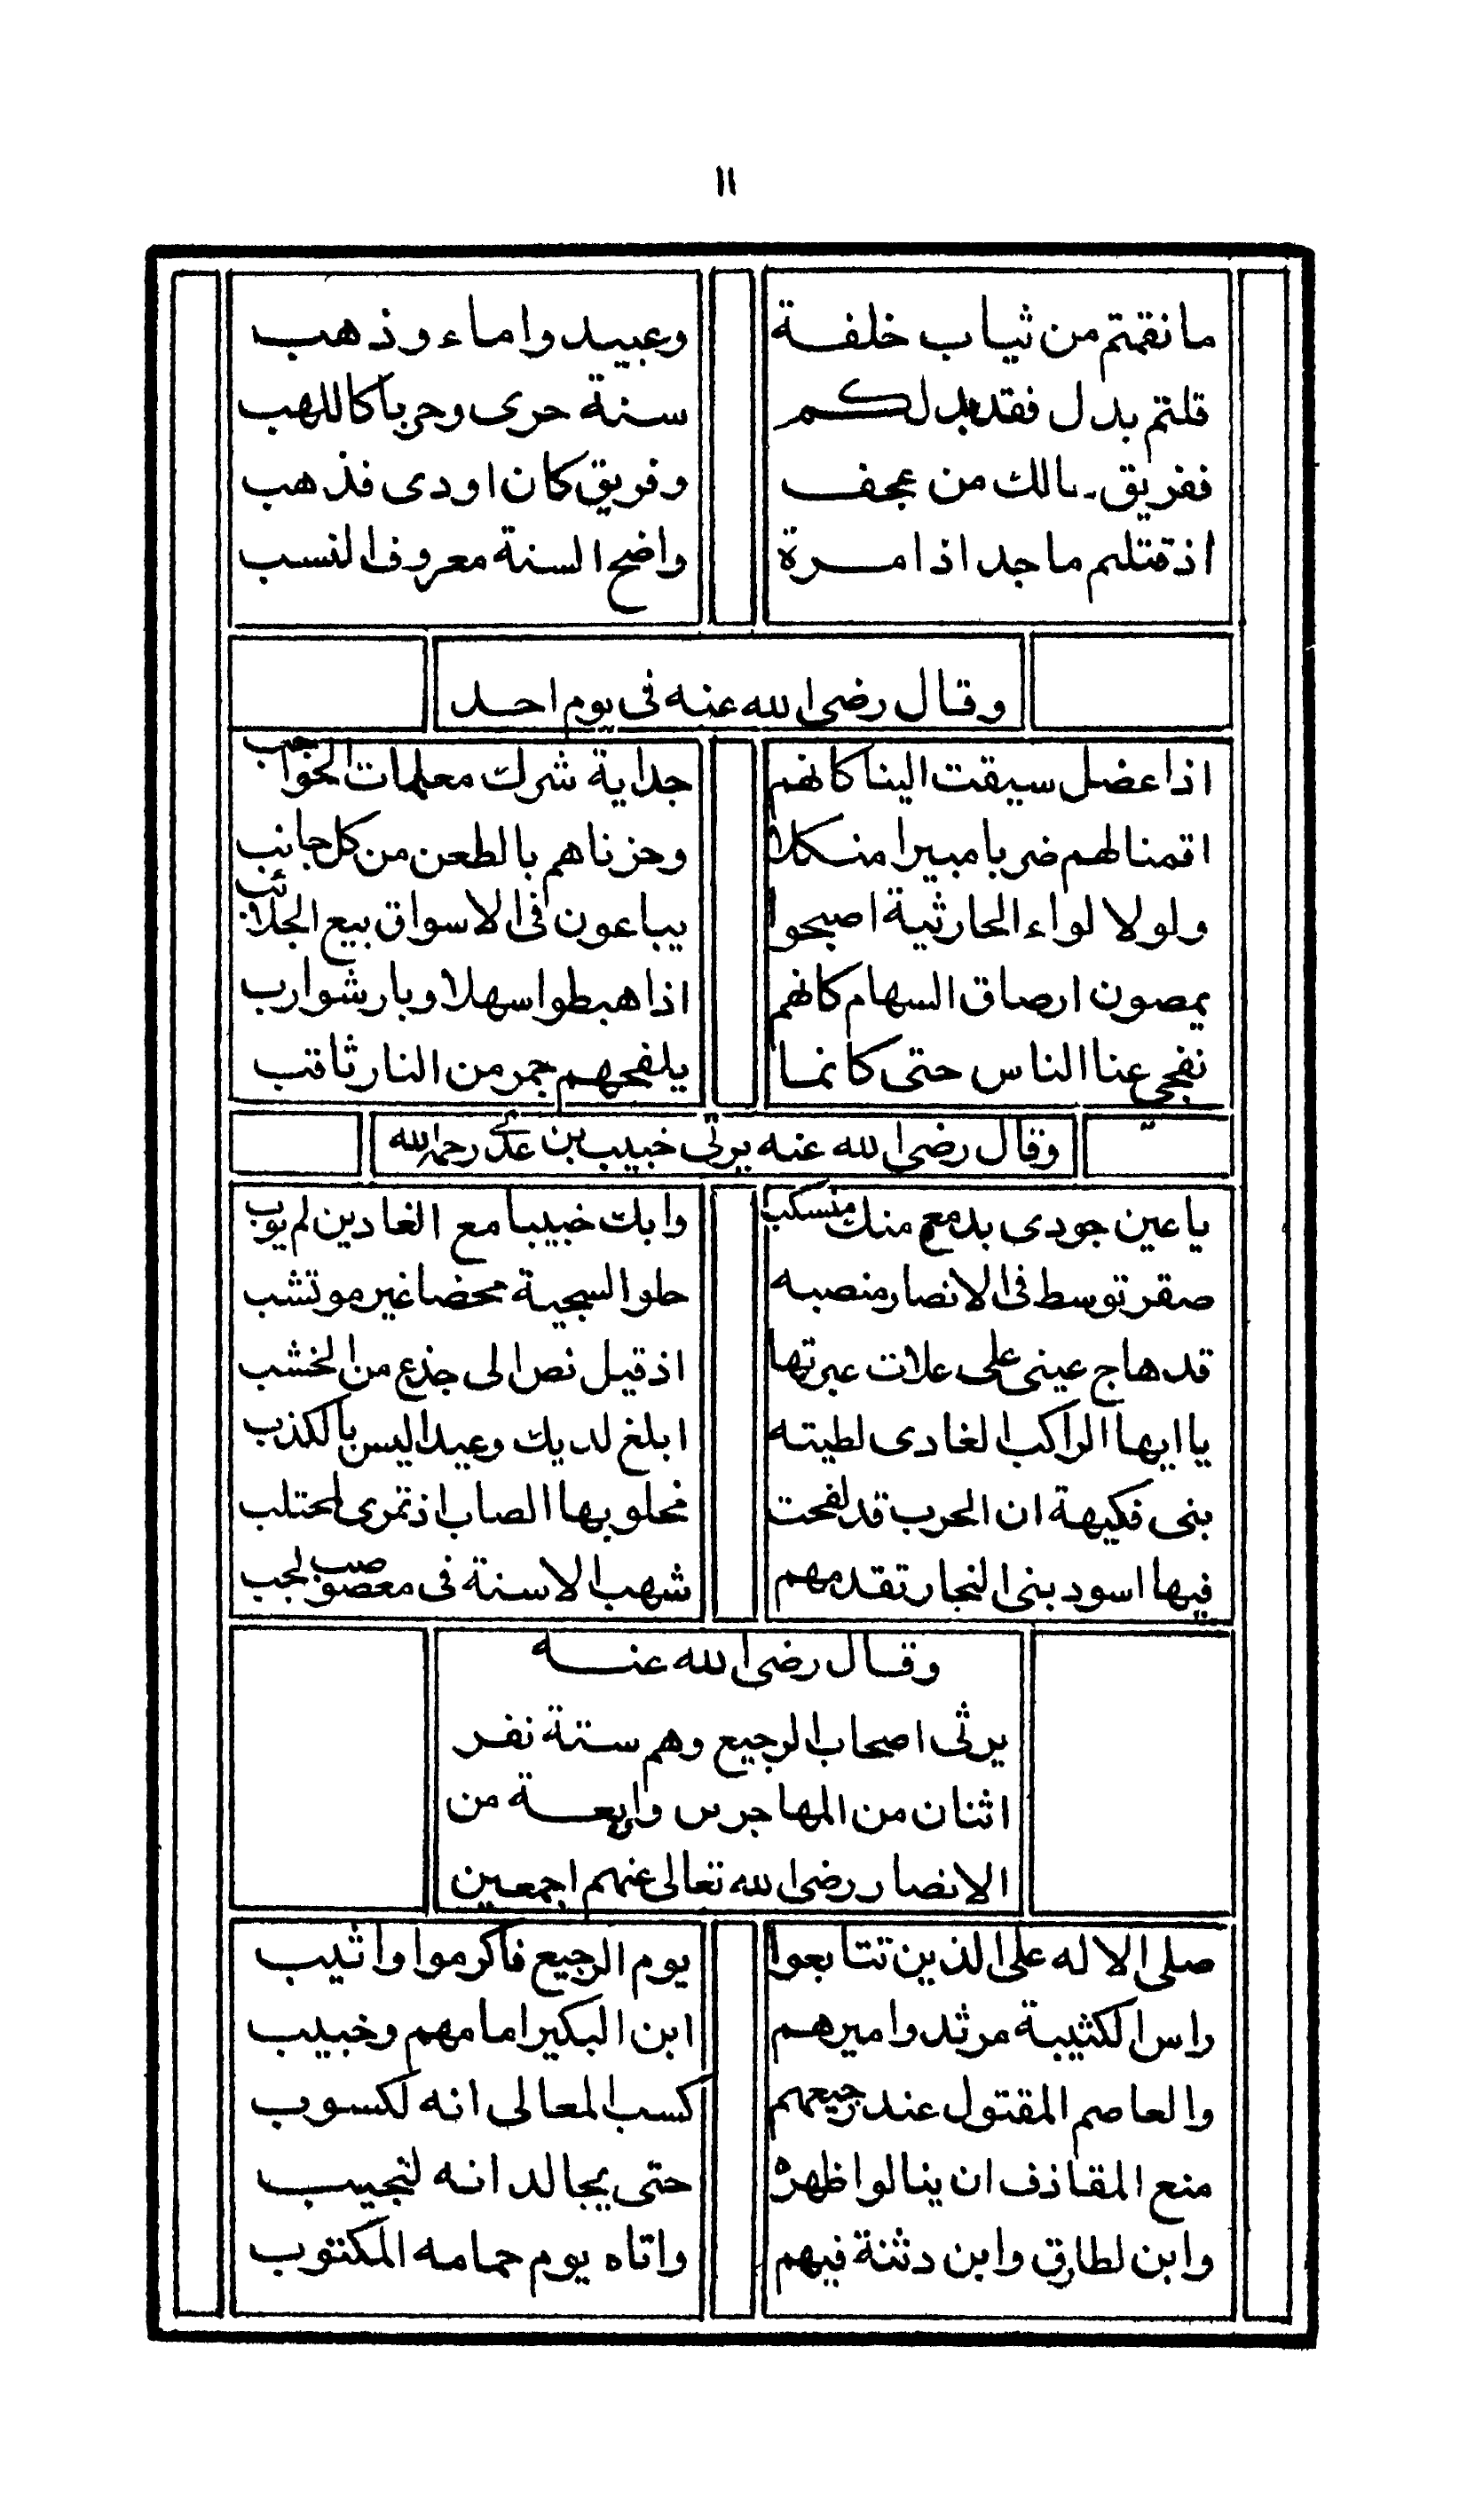 ١١
مانقمتم من ثياب خلفة وعبيد واماء وذهب
قلتم بدل فقد بدلكم سنة حرى وحربا كاللهب
ففريق هالك من عجف وفريق كان اودى فذهب
اذقتلتم ماجدا ذا مرة واضح السنة معروف النسب
وقال رضى الله عنه فى يوم احد
اذا عضل سيقت الينا كانهم جداية شرك معلمات الحواجب
اقمنا لهم ضربا مبيرا منكلا وحزناهم بالطعن من كل جانب
ولولا لواء الحارثية اصبحوا يباعون فى الاسواق بيع الجلائب
يمصون ارصاق السهام كانهم اذا هبطوا سهلا وبار شوارب
نفجى عنا الناس حتى كانما يلفحهم جمر من النار ثاقب
وقال رضى الله عنه يرثى خبيب بن عدى رحمه الله
يا عين جودى بدمع منك منسكب وابك خبيبا مع الغادين لم يوب
صقر توسط فى الانصار منصبه حلو السجية محضا غير موتشب
قد هاج عينى على علات عبرتها اذ قيل نص الى جذع من الخشب
يا ايها الراكب الغادى لطيته ابلغ لديك وعيدا ليس بالكذب
بنى فكيهة ان الحرب قد لقحت محلوبها الصاب اذ تمرى لمحتلب
فيها اسود بنى النجار تقدمهم شهب الاسنة فى معصوصب لجب
وقال رضى الله عنه
يرثى اصحاب الرجيع وهم ستة نفر
اثنان من المهاجرين واربعة من
الانصار رضى الله تعالى عنهم اجمعين
صلى الاله على الذين تتابعوا يوم الرجيع فاكرموا واثيب
راس الكثيبة مرثد واميرهم ابن البكير امامهم وخبيب
والعاصم المقتول عند رجيعهم كسب المعالى انه لكسوب
منع المقاذف ان ينالوا ظهره حتى يجالد انه لنجيب
وابن لطارق وابن دثنة فيهم واتاه يوم حمامه المكتوب